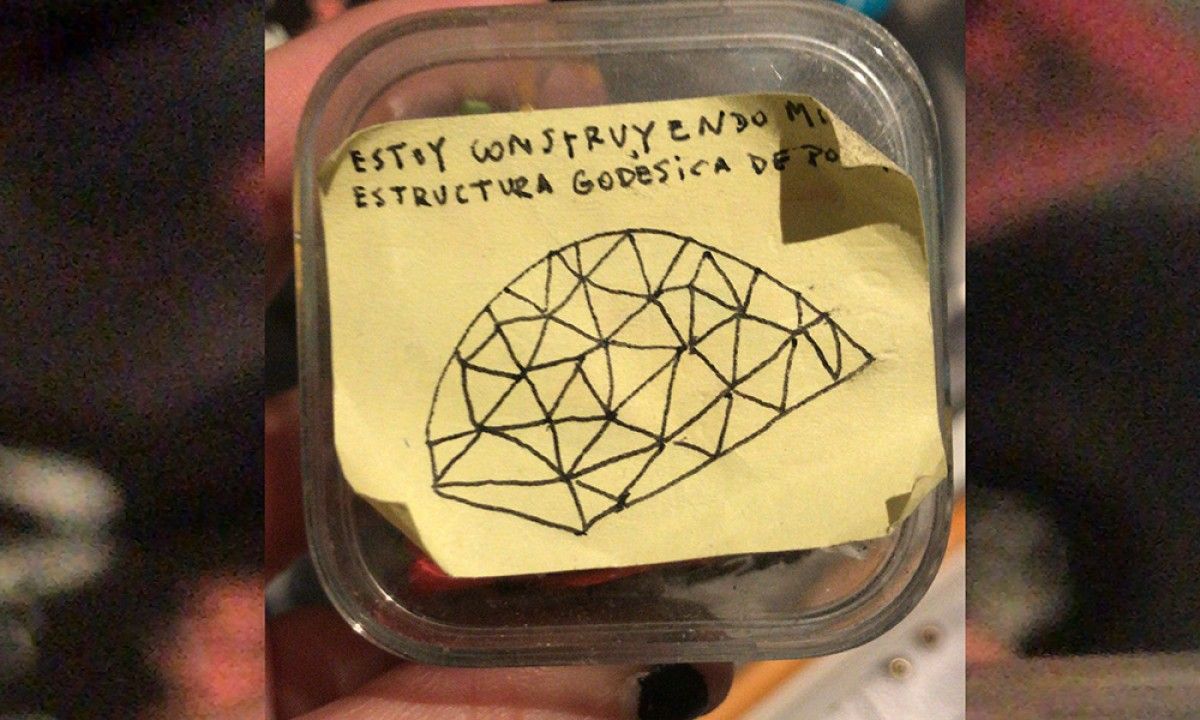 ESTOY CONSTRUYENDO
ESTRUCTURA GODÉSICA DE